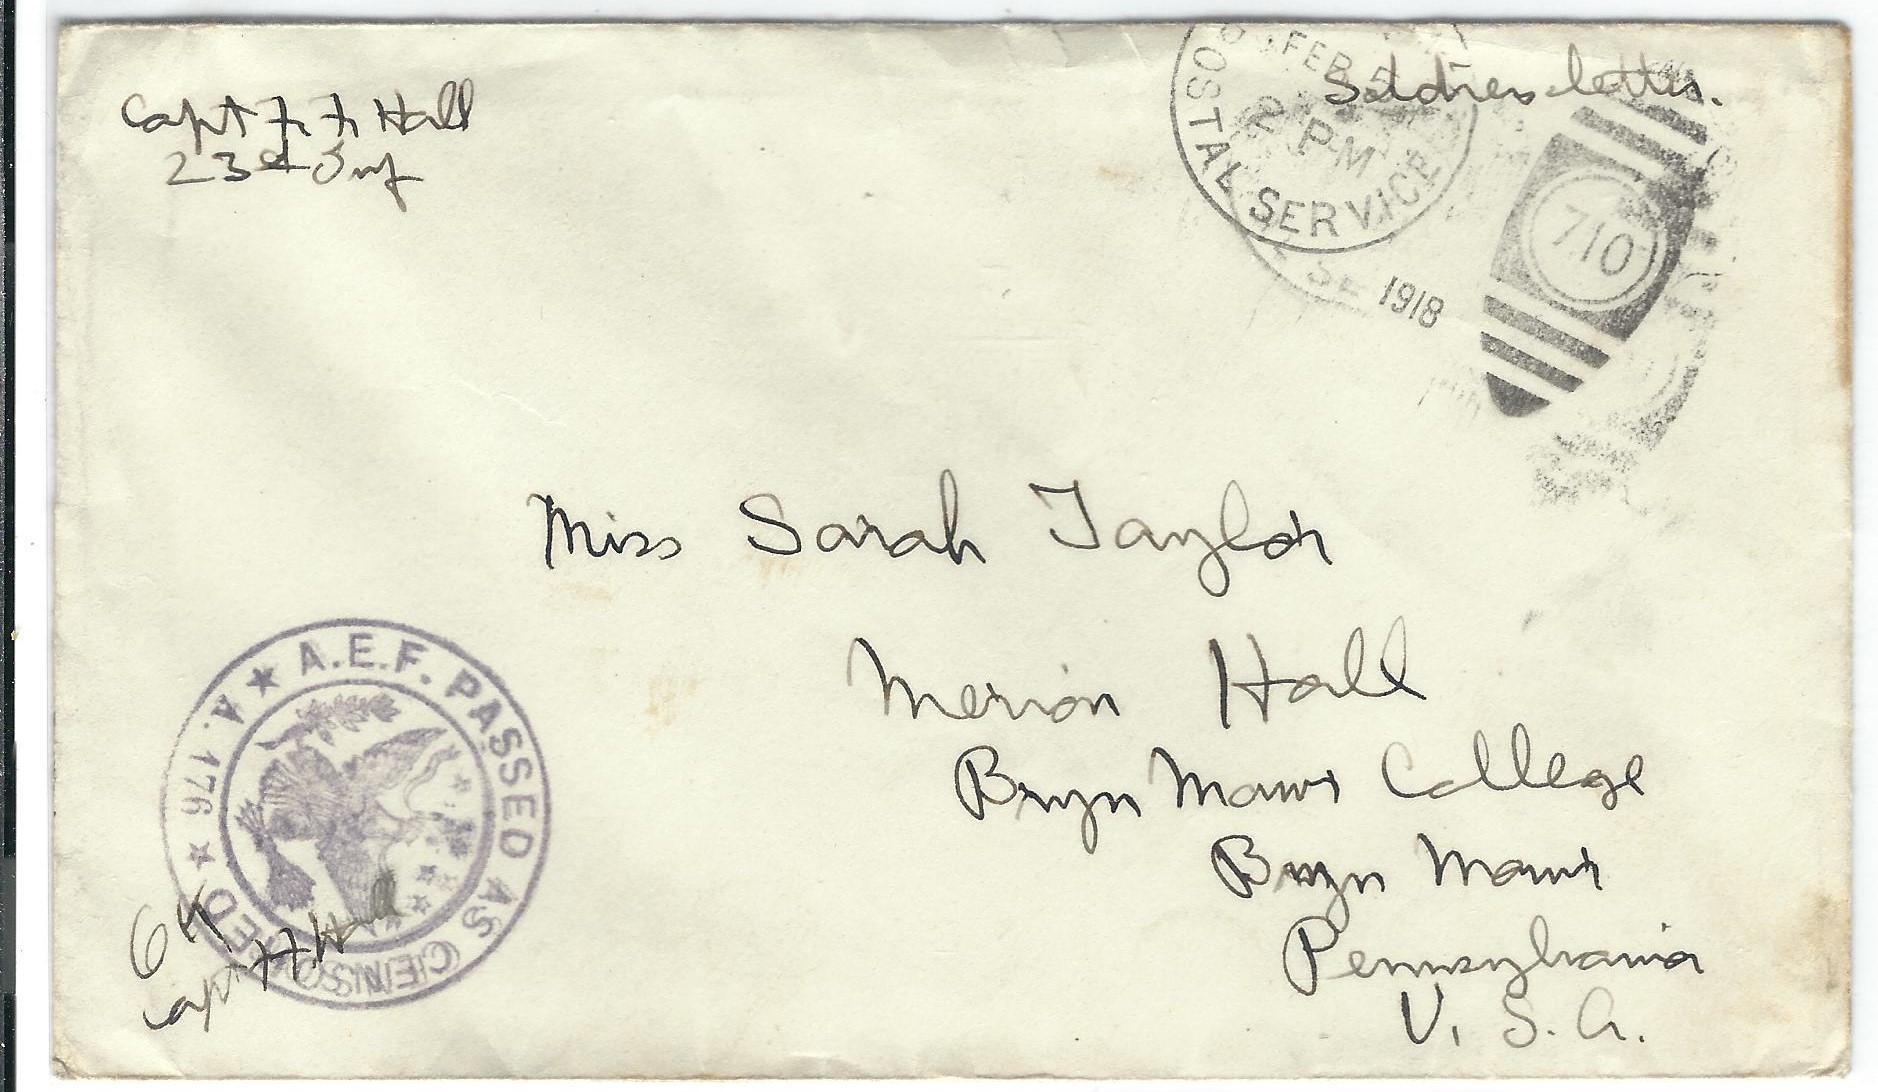 Capt F. F. Hall
23rd Inf
Soldiers letter.
FEB 5
2 PM
POSTAL SERVICE
1918
710
Miss Sarah Taylor
Merion Hall
Bryn Mawr College
Bryn Mawr
Pennsylvania
U. S. A.
A.E.F. PASSED AS CENSORED ★ A. 176 ★
OK
Capt Hall